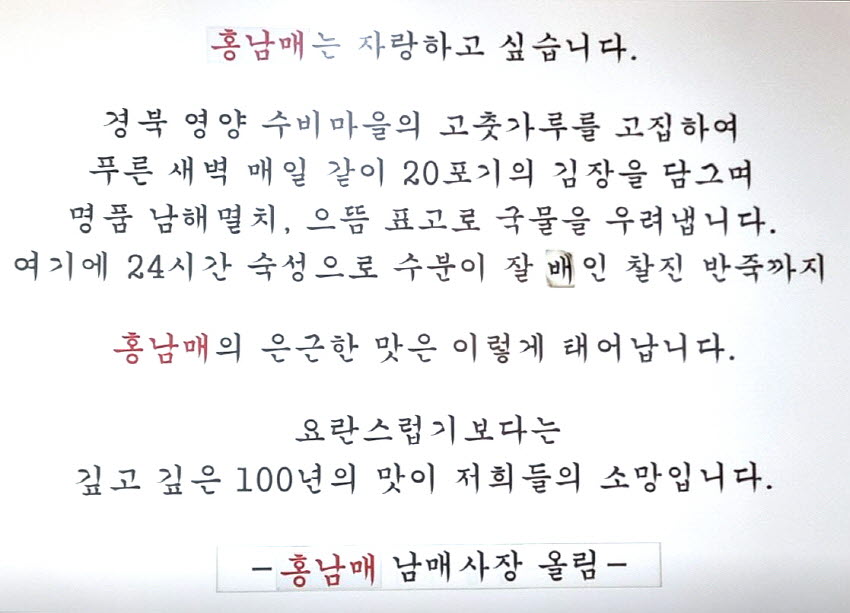 홍남매는 자랑하고 싶습니다.
경북 영양 수비마을의 고춧가루를 고집하여
푸른 새벽 매일 같이 20포기의 김장을 담그며
명품 남해멸치, 으뜸 표고로 국물을 우려냅니다.
여기에 24시간 숙성으로 수분이 잘 배인 찰진 반죽까지
홍남매의 은근한 맛은 이렇게 태어납니다.
요란스럽기보다는
깊고 깊은 100년의 맛이 저희들의 소망입니다.
-홍남매 남매사장 올림-